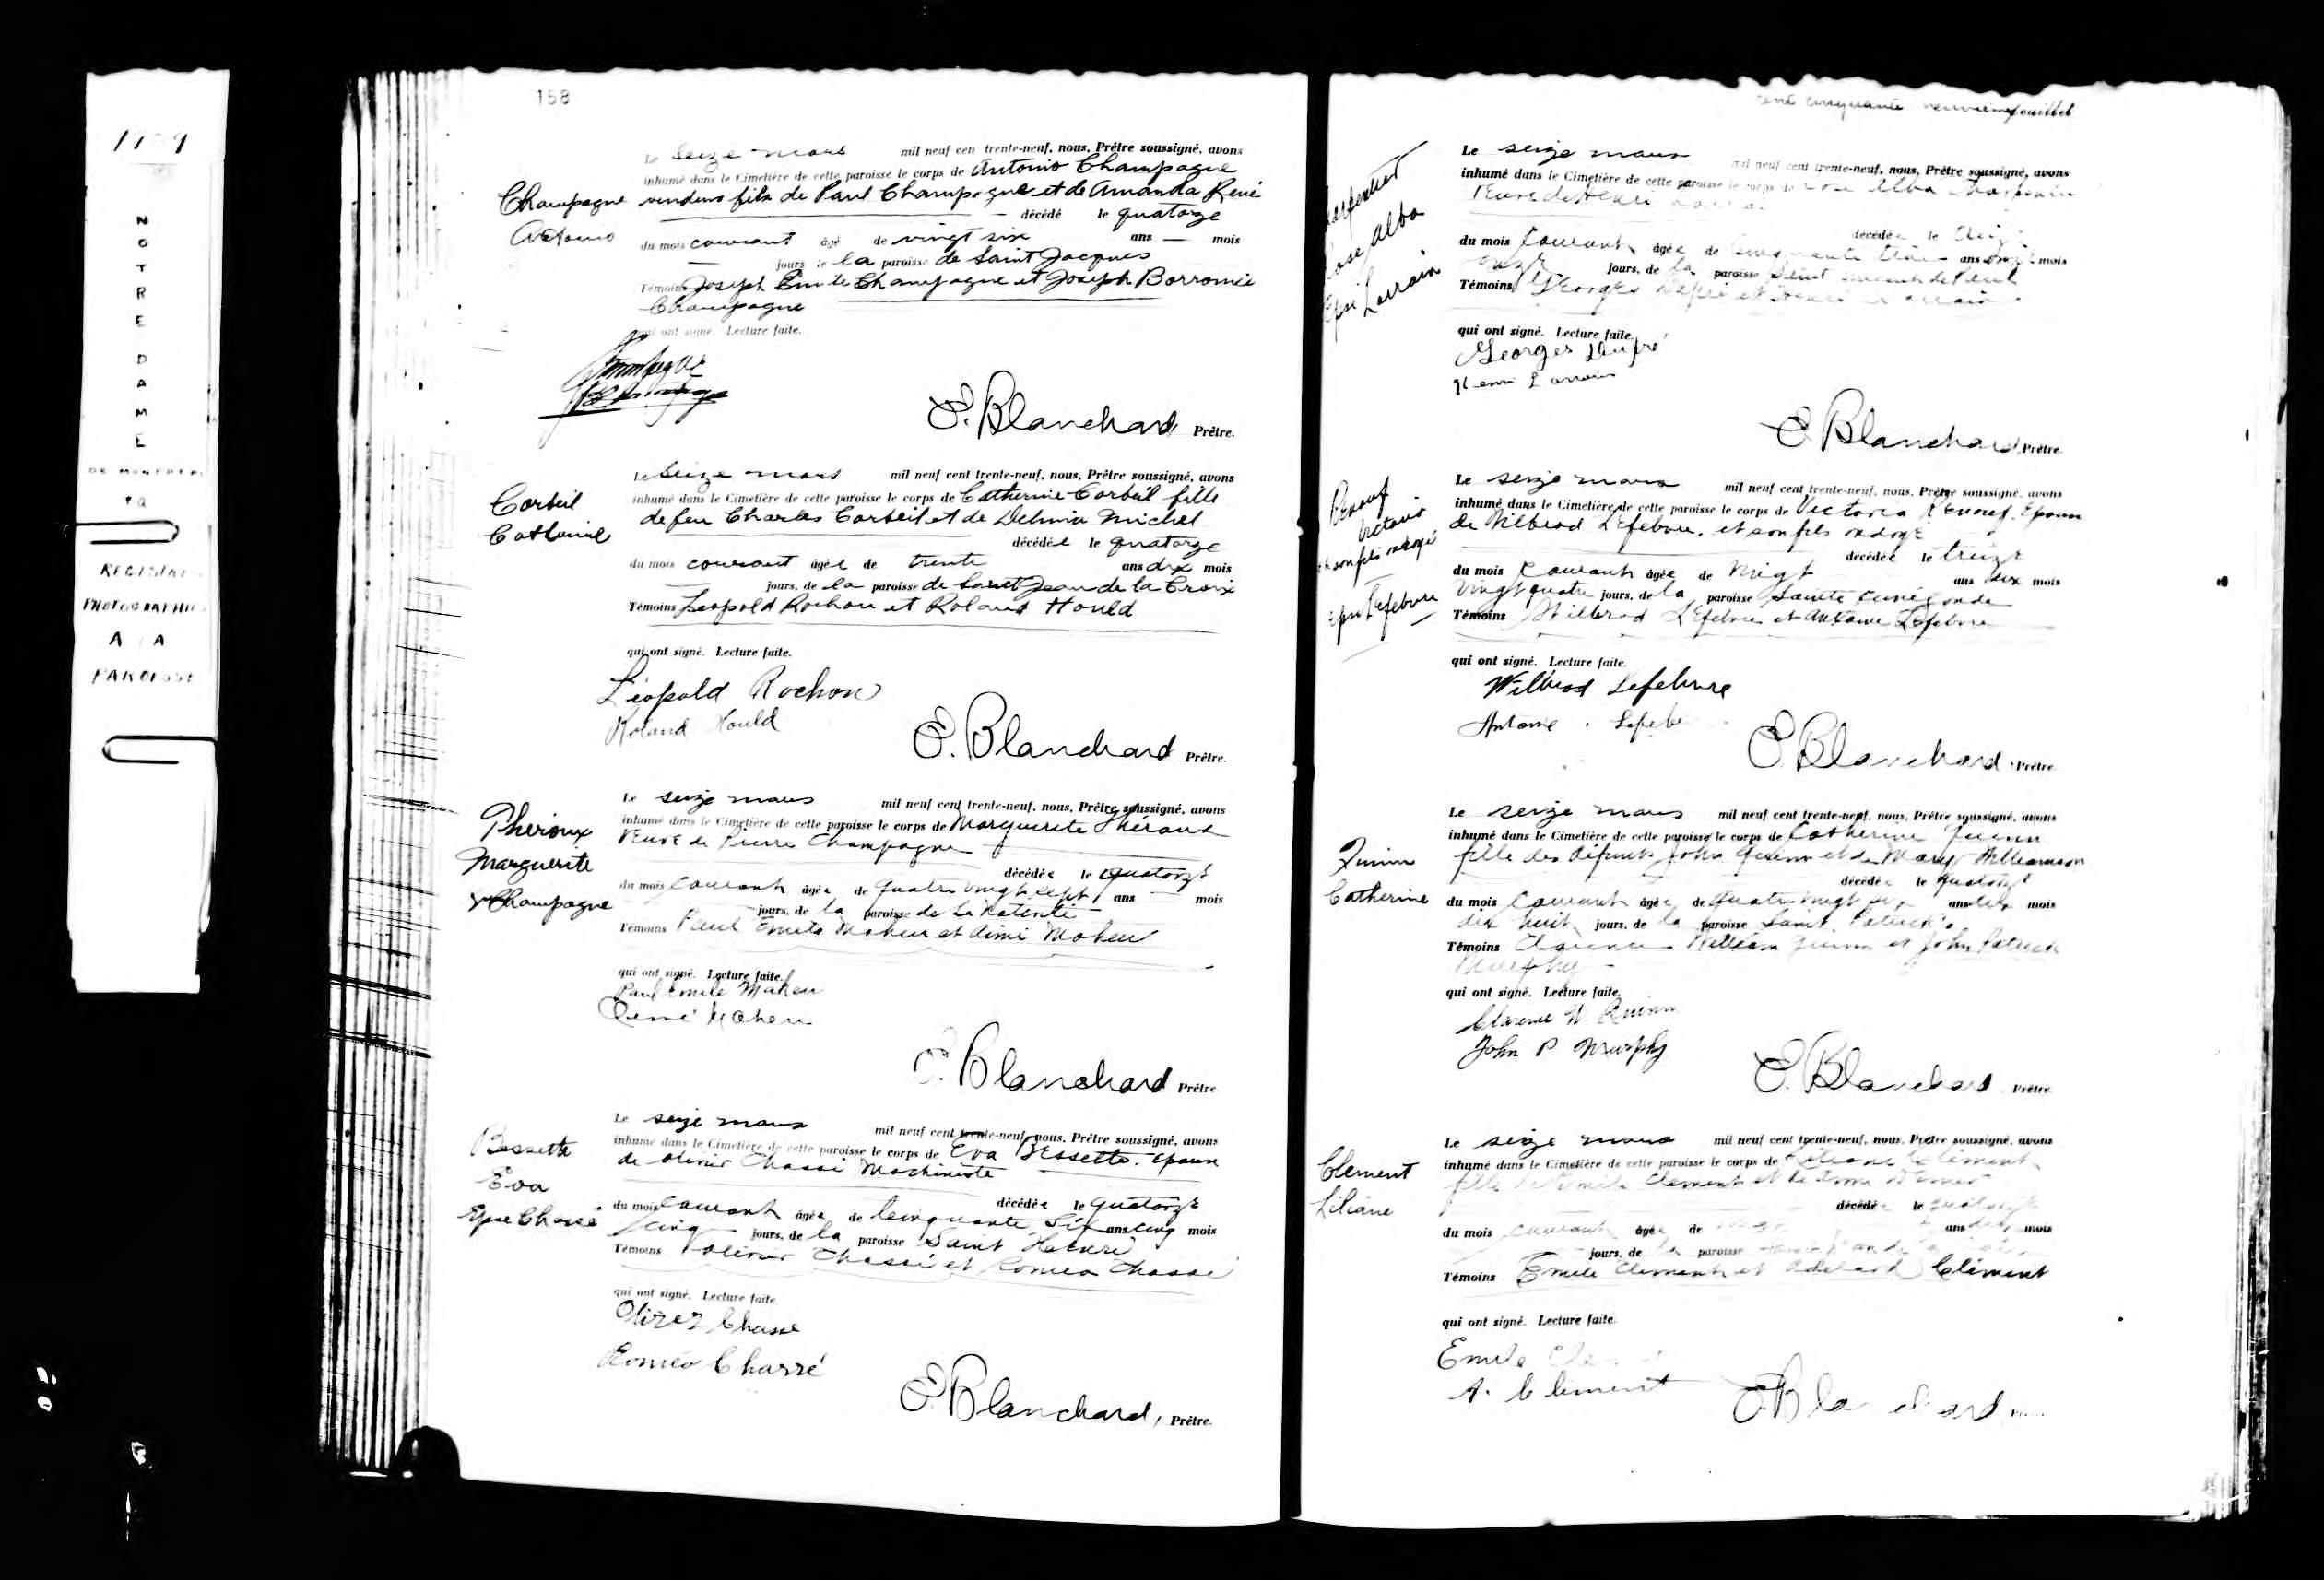 NOTRE DAME
REGISTRE
PHOTOGRAPHIÉ
A LA
PAROISSE
158
Le Seize mars mil neuf cen trente-neuf, nous, Prêtre soussigné, avons
inhumé dans le Cimetière de cette paroisse le corps de Antonio Champagne
Champagne vendeur fils de Paul Champagne et de Amanda René
décédé le quatorze
Antonio du mois courant âgé de vingt six ans — mois
jours de la paroisse de Saint Jacques
Témoins Joseph Emile Champagne et Joseph Borromée
Champagne
qui ont signé. Lecture faite.
E. Blanchard, Prêtre.
Le Seize mars mil neuf cent trente-neuf, nous, Prêtre soussigné, avons
Corbeil inhumé dans le Cimetière de cette paroisse le corps de Catherine Corbeil fille
de feu Charles Corbeil et de Delmia Michel
Catherine décédée le quatorze
du mois courant âgée de trente ans dix mois
jours, de la paroisse de Saint Jean de la Croix
Témoins Léopold Rochon et Roland Hould
qui ont signé. Lecture faite.
Léopold Rochon
Roland Hould
E. Blanchard Prêtre.
Le seize mars mil neuf cent trente-neuf, nous, Prêtre soussigné, avons
Theroux inhumé dans le Cimetière de cette paroisse le corps de Marguerite
veuve de Pierre Champagne
Marguerite décédée le quatorze
du mois courant âgée de quatre vingt sept ans mois
Champagne jours, de la paroisse de la Nativité
Témoins Paul Emile Maheu et Aimé Maheu
qui ont signé. Lecture faite.
Paul Emile Maheu
Aimé Maheu
E. Blanchard Prêtre
Le seize mars mil neuf cent trente-neuf, nous, Prêtre soussigné, avons
Bessette inhumé dans le Cimetière de cette paroisse le corps de Eva Bessette. Epouse
de Olivier Chassé Machiniste
Eva décédée le quatorze
Epse Chassé du mois courant âgée de cinquante six ans cinq mois
cinq jours, de la paroisse Saint Henri
Témoins Olivier Chassé et Romeo Chassé
qui ont signé. Lecture faite
Chassé
Roméo Chassé
E. Blanchard, Prêtre.
cent cinquante neuvième feuillet
Le seize mars mil neuf cent trente-neuf, nous, Prêtre soussigné, avons
inhumé dans le Cimetière de cette paroisse le corps de Rose Alba Charpentier
Rose Alba
décédée le
Epse Lorrain du mois courant âgée de cinquante ans onze mois
onze jours, de la paroisse Saint
Témoins Georges Dupré et Henri Lorrain
qui ont signé. Lecture faite.
Georges Dupré
Henri Lorrain
E Blanchard, Prêtre
Le seize mars mil neuf cent trente-neuf, nous, Prêtre soussigné, avons
Renouf inhumé dans le Cimetière de cette paroisse le corps de Victoria Renouf, Epouse
Victoria de Wilbrod Lefebvre, et son fils ondoyé
et son fils ondoyé décédée le treize
du mois courant âgée de vingt ans mois
Epse Lefebvre vingt quatre jours, de la paroisse Sainte Cunégonde
Témoins Wilbrod Lefebvre et Antoine Lefebvre
qui ont signé. Lecture faite.
Wilbrod Lefebvre
Antoine
E. Blanchard Prêtre
Le seize mars mil neuf cent trente-neuf, nous, Prêtre soussigné, avons
inhumé dans le Cimetière de cette paroisse le corps de Catherine Quinn
Quinn fille des défunts John Quinn et de Mary Williamson
décédée le quatorze
Catherine du mois courant âgée de quatre vingt ans mois
dix huit jours, de la paroisse Saint Patrick
Témoins Clarence William Quinn et John Patrick
Murphy
qui ont signé. Lecture faite.
Clarence W. Quinn
John P Murphy
E. Blanchard Prêtre
Le seize mars mil neuf cent trente-neuf, nous, Prêtre soussigné, avons
Clement inhumé dans le Cimetière de cette paroisse le corps de Liliane Clément
fille de Emile Clement et de
Liliane décédée le quatorze
du mois courant âgée de ans mois
jours, de la paroisse
Témoins Emile Clement et Adelard Clément
qui ont signé. Lecture faite.
Emile
A. Clement
E Blanchard